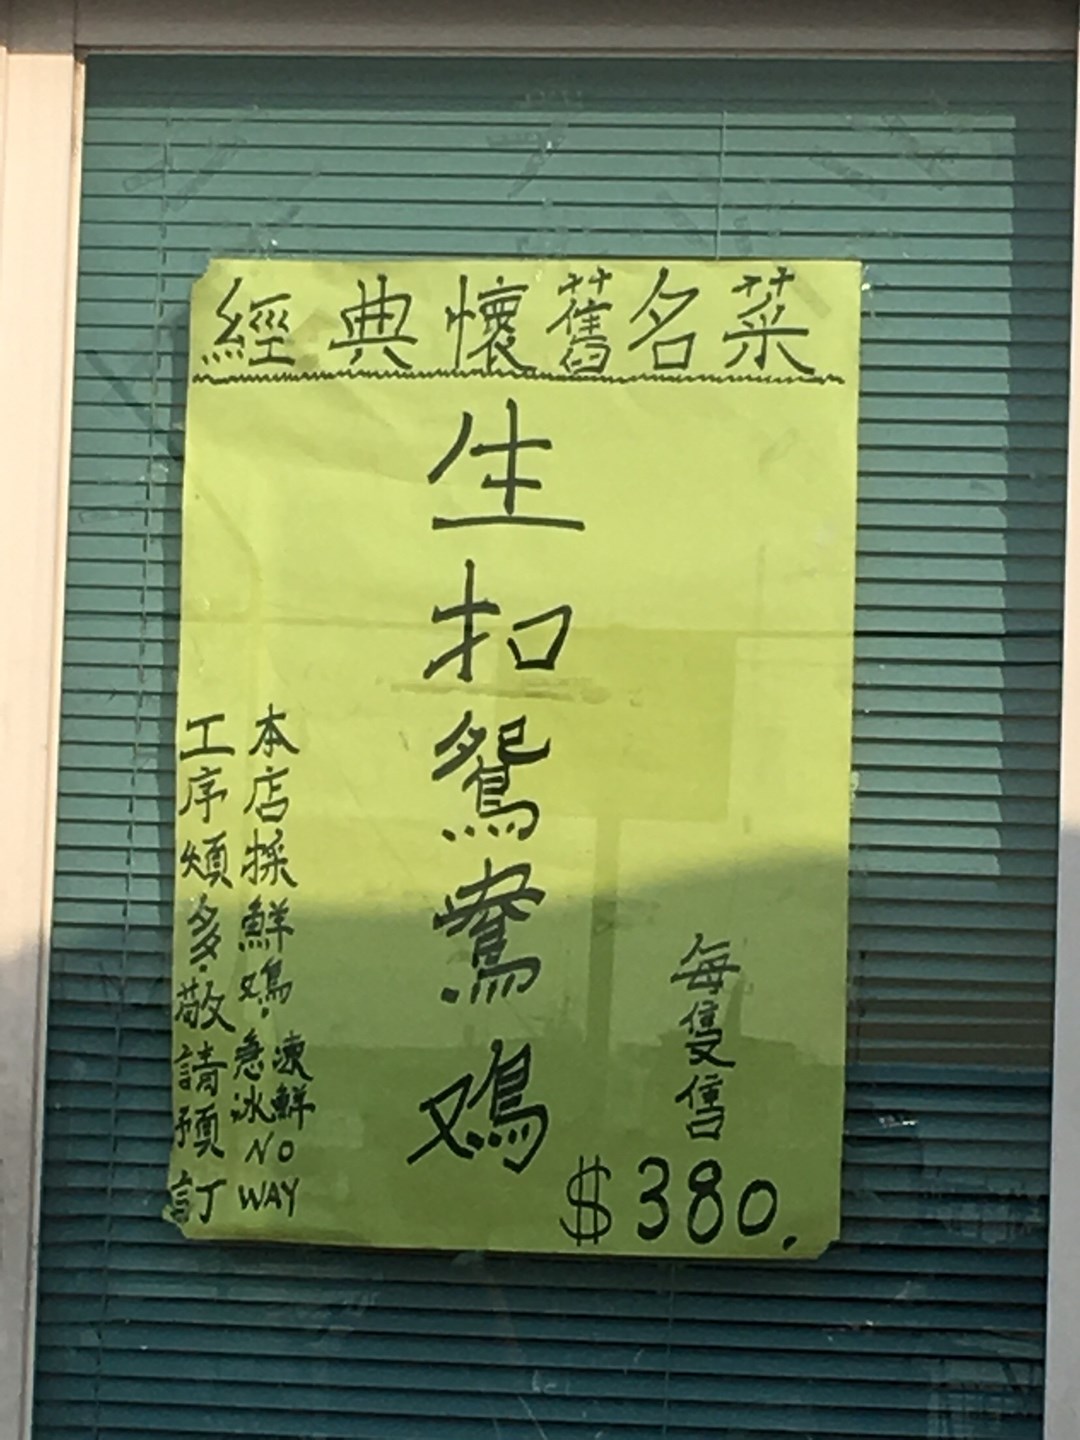 經典懷舊名菜
生扣鴛鴦鷄
每隻售
$380.
本店採鮮鷄·急凍冰鮮NO WAY
工序煩多·敬請預訂